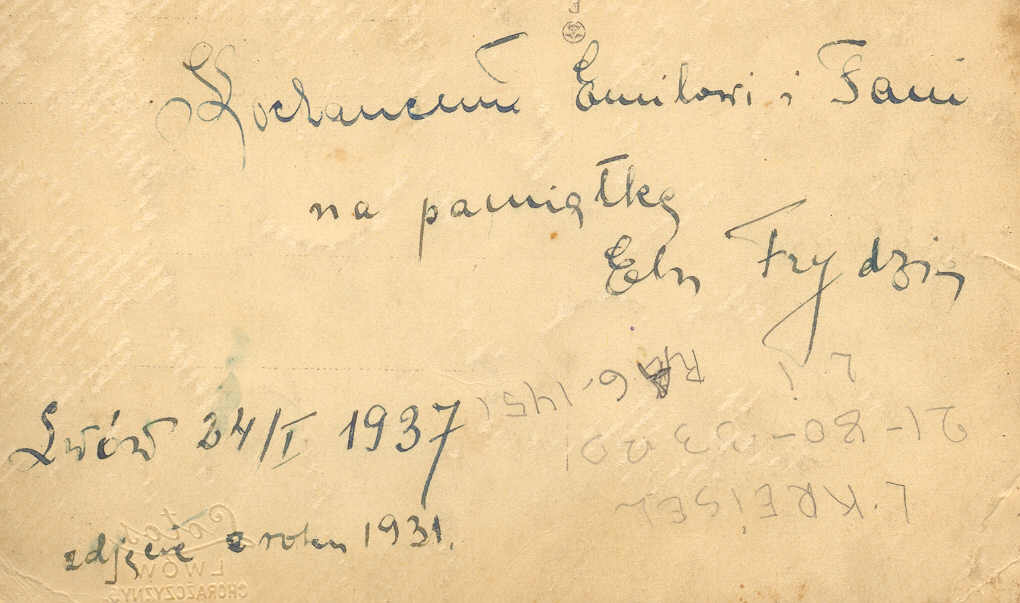 Kochanemu Emilowi i Fani
na pamiątkę
Lwów 24/I 1937
zdjęcie z roku 1931.
L. KREISEL
LWÓW
CHORĄŻCZYZNY